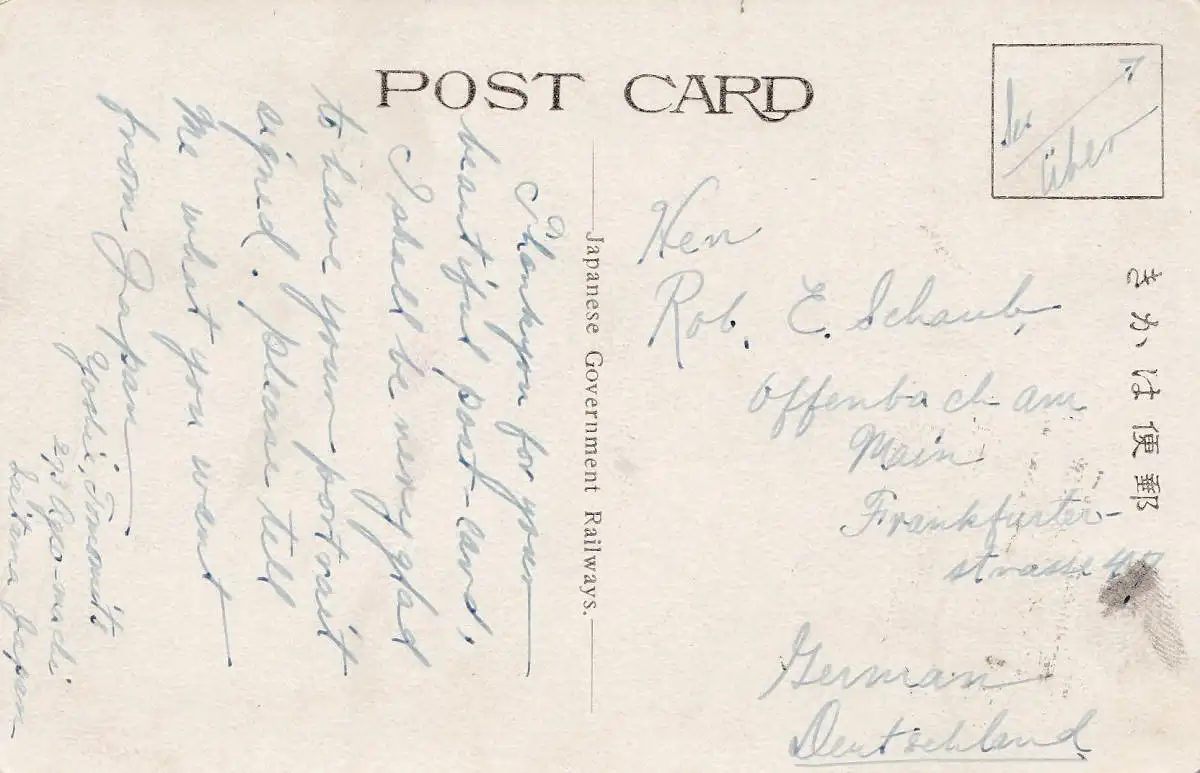 POST CARD
Thank you for your
beautiful post-card,
I shall be very glad
to have your portrait
signed. please tell
me what you want
from Japan
Yoshii, Tomomits
Ageo-machi
Saitama Japan
Japanese Government Railways.
über
きかは便郵
Herr
Rob. E. Schaub,
Offenbach am
Main
Frankfurter-
strasse
German
Deutschland.